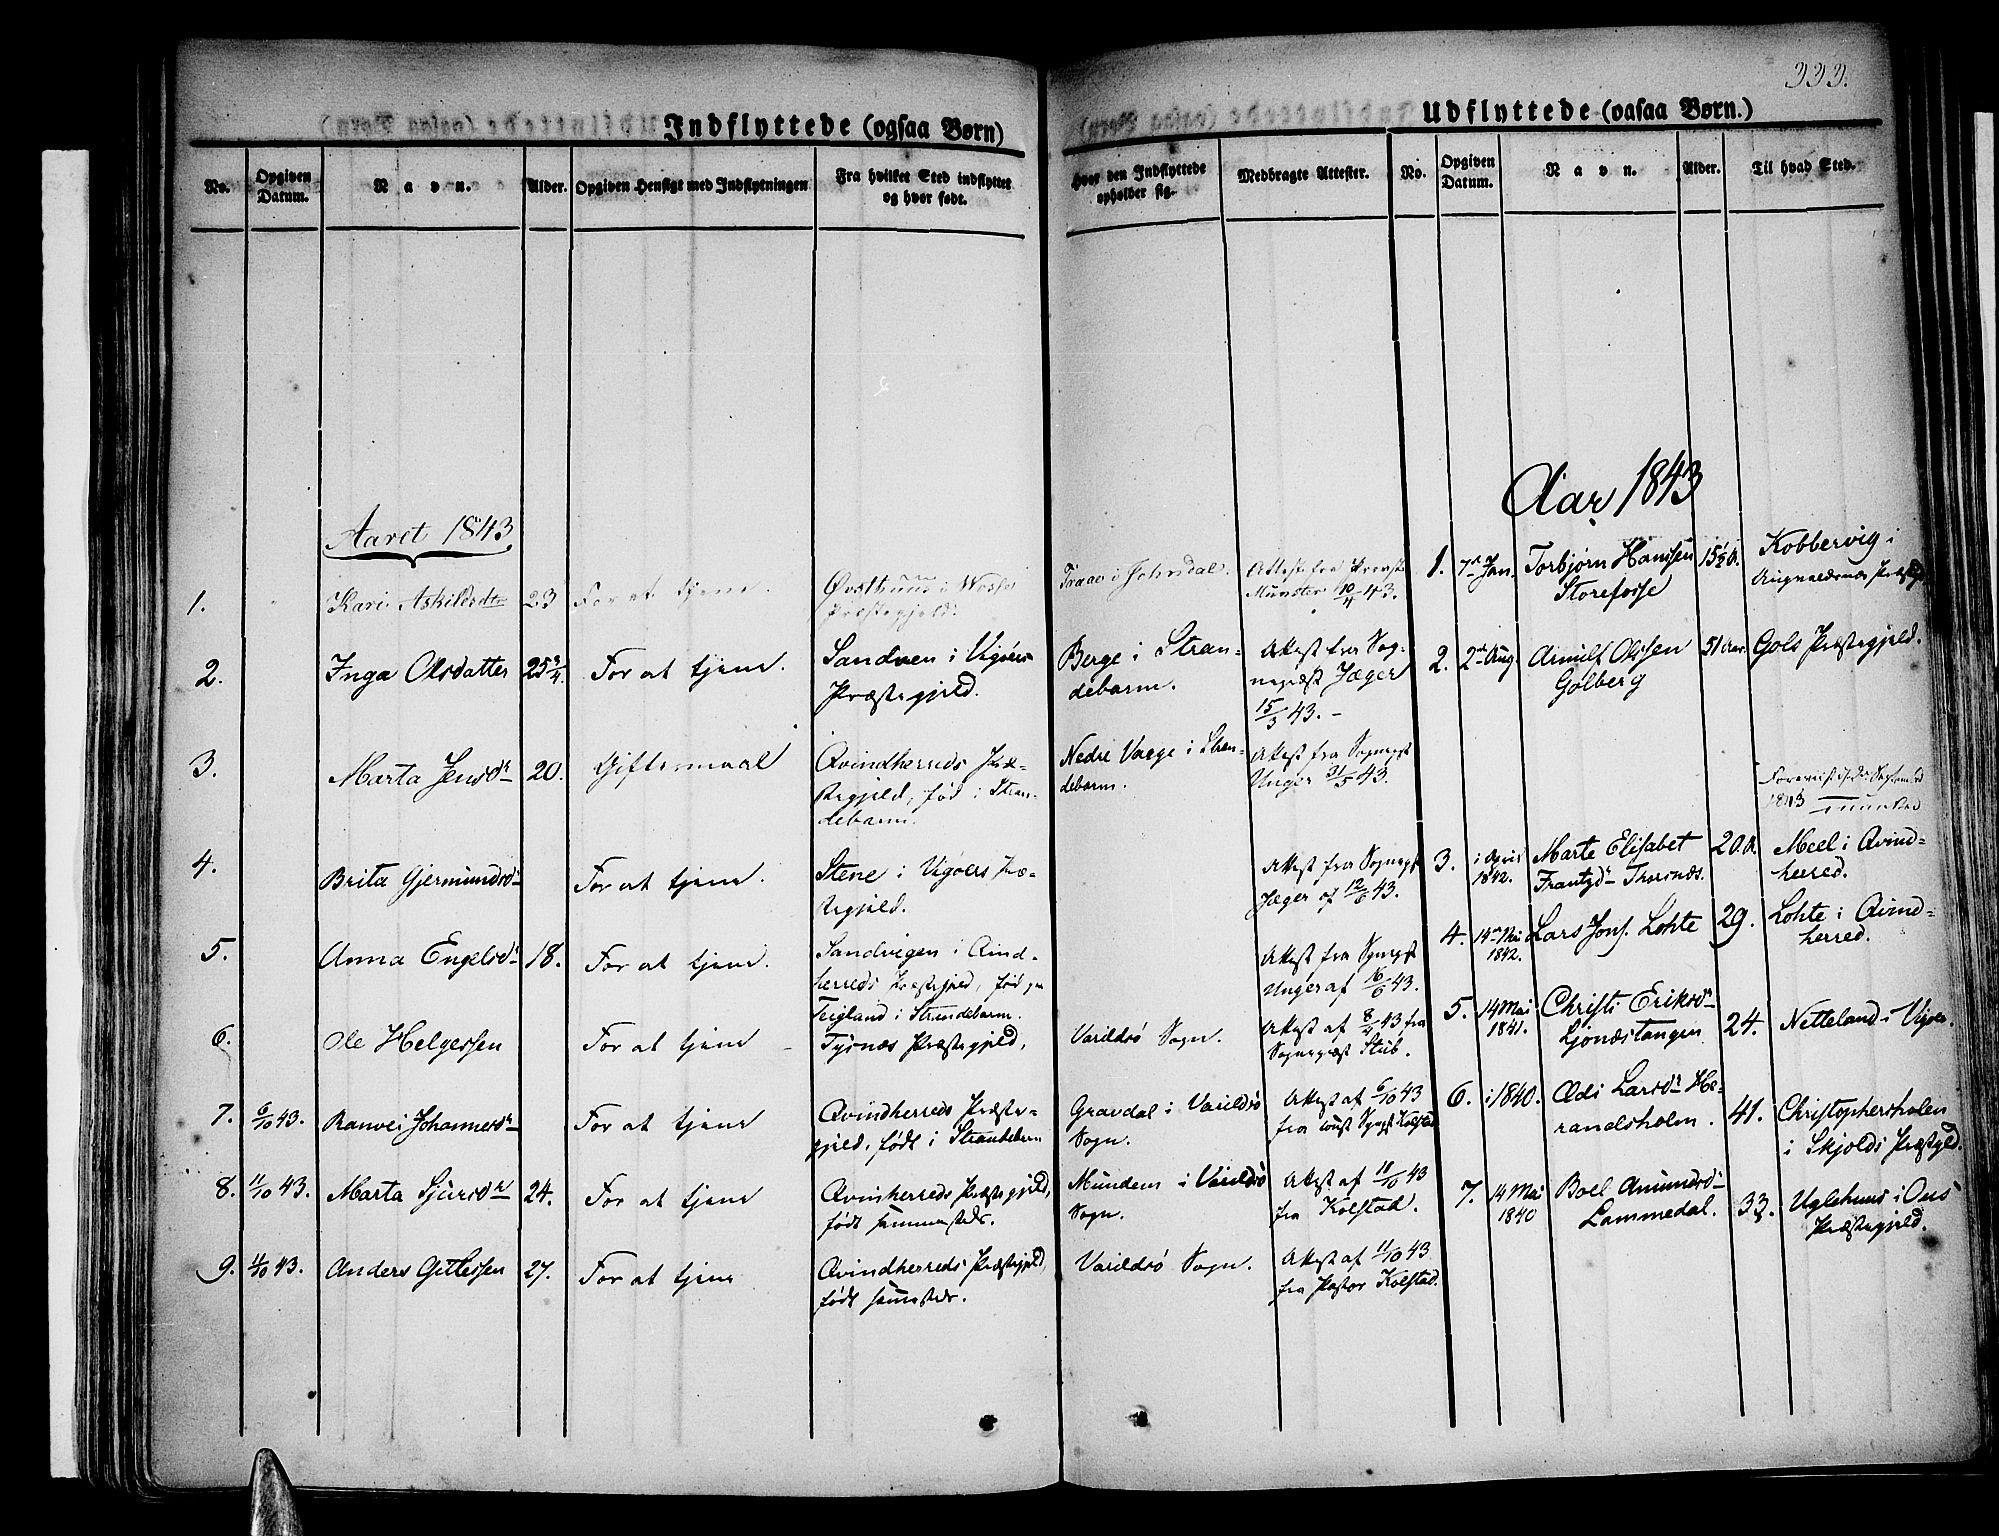 333.
Indflyttede (ogsaa Børn)
No.
Opgiven
Datum.
Navn.
Alder.
Opgiven Hensigt med Indflytningen
Fra hvilket Sted indflyttet
og hvor født.
Hvor den Indflyttede
opholder sig.
Medbragte Attester.
Aaret 1843
1. Kari Askildsdtr 23 For at tjene. Østhuus i Wosse
Præstegjeld. Traae i Jondal. Attest fra Provst
Münster 10/4 43.
2. Inga Olsdatter 25 3/4 For at tjene. Sandven i Vigøers
Præstegjeld. Berge i Stran-
debarm. Attest fra Sog-
nepræst Jæger
15/3 43. –
3. Marta Jensdr 20. Giftermaal Qvindherreds Præ-
stegjeld, fød i Stran-
debarm. Nedre Vaage i Stran-
debarm. Attest fra Sognepst
Unger 31/5 43.
4. Brita Gjermundsdr For at tjene. Stene i Vigøers Præ-
stegjeld. Attest fra Sognepst
Jæger af 12/6 43.
5. Anna Engelsdr 18. For at tjene. Sandvigen i Qvind-
herreds Præstegjeld, fød paa
Teigland i Strandebarm. Attest fra Sognepst
Unger af 16/6 43.
6. Ole Helgessen For at tjene – Tysnæs Præstegjeld, Varildsø Sogn. Attest af 8/4 43 fra
Sognepræst Stub.
7. 6/10 43. Ranvei Johannesdr For at tjene Qvindherreds Præste-
gjeld, født i Strandebarm Gravdal i Varildsø
Sogn. Attest af 6/10 43
fra const Sognpst Kolstad
8. 11/10 43. Marta Sjursdr 24. For at tjene Qvinherreds Præstegjeld,
født sammesteds. Mundem i Varildsø
Sogn. Attest af 11/10 43
fra Kolstad.
9. 11/10 43. Anders Gitlessen 27. For at tjene Qvindherreds Præstegjeld
født sammesteds. Varildsø Sogn. Attest af 11/10 43
fra Pastor Kolstad.
Udflyttede (ogsaa Børn.)
No.
Opgiven
Datum.
Navn.
Alder.
Til hvad Sted.
Aar 1843
1. 7de Jan. Torbjørn Hanssen
Storefosse 15 1/2 A. Kobbervig i
Augvaldsnæs Præstegj
2. 2den Aug. Arnulf Olssen
Golberg 51 Aar. Gols Præstegjeld.
Forevist Septembr
1843
3. i April
1842. Marte Elisabet
Frantzdr Thorsnæs. 20 A. Meel i Qvind-
herred.
4. 14de Mai
1842. Lars Jons. Lohte 29. Lohte i Qvind-
herred.
5. 14 Mai
1841. Christi Eriksdr
Ljonæstangen 24. Netteland i Vigøer.
6. i 1840. Ædi Larsdr He-
randsholm. 41. Christophersholen
i Skjolds Præstgjld.
7. 14 Mai
1840 Boel Amundsdr
Lammedal. 33. Uglehuus i Ous
Præstegjeld.